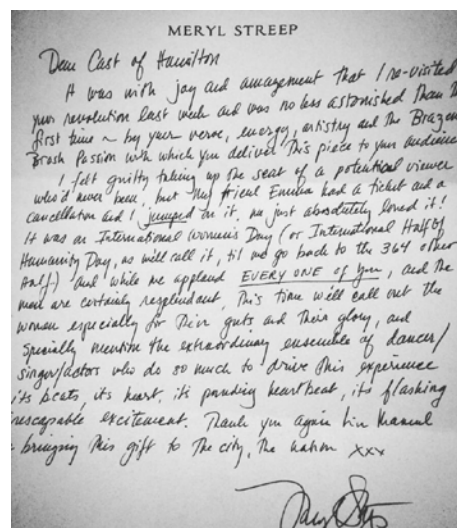 MERYL STREEP
Dear Cast of Hamilton
It was with joy and amazement that I re-visited
your revolution last week and was no less astonished than the
first time ~ by your verve, energy, artistry and the Brazen
Brash Passion with which you deliver this piece to your audience
I felt guilty taking up the seat of a potential viewer
who'd never been, but my friend Emma had a ticket and a
cancellation and I jumped on it, we just absolutely loved it!
It was on International Women's Day (or International Half of
Humanity Day, as we'll call it, til we go back to the 364 other
half-) and while we applaud EVERY ONE of you, and the
men are certainly resplendant, this time we'll call out the
women especially for their guts and their glory, and
specially mention the extraordinary ensemble of dancer/
singer/actors who do so much to drive this experience
its beats, its heart, its pounding heartbeat, its flashing
inescapable excitement. Thank you again Lin Manuel
bringing this gift to the city, the nation xxx
Meryl Streep